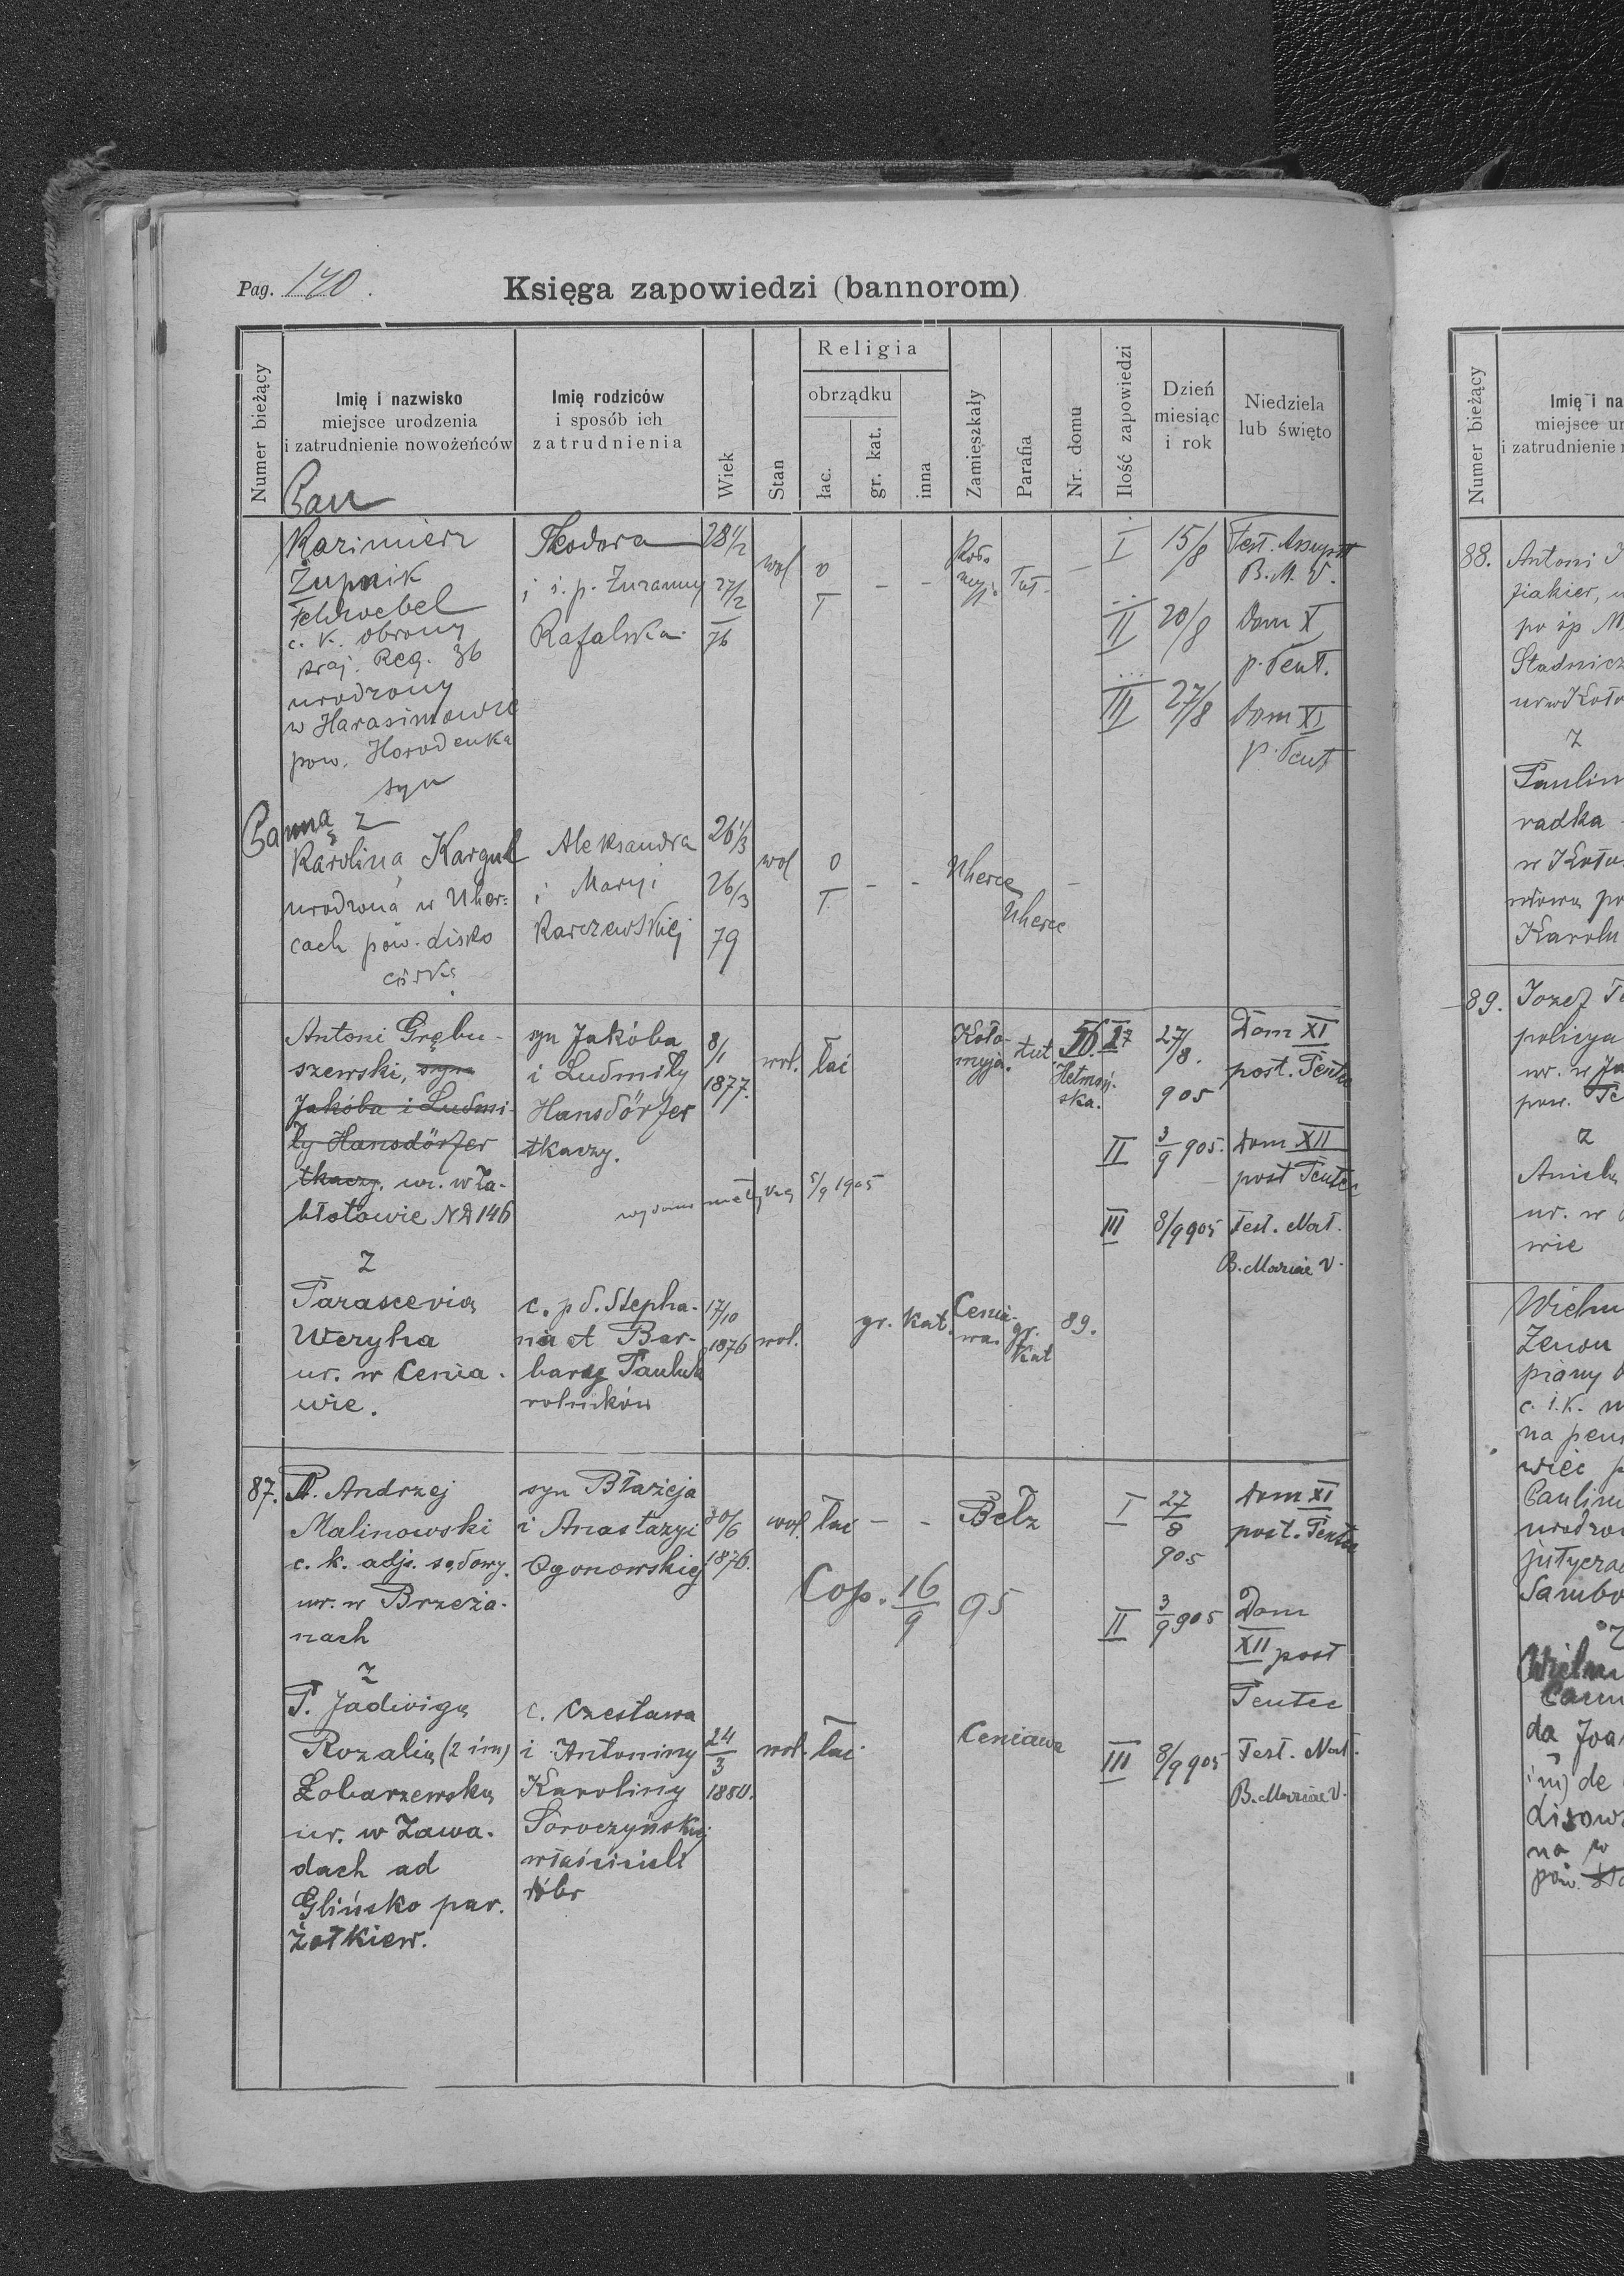 Pag. 140.
Księga zapowiedzi (bannorom)
Numer bieżący
Imię i nazwisko
miejsce urodzenia
i zatrudnienie nowożeńców
Imię rodziców
i sposób ich
zatrudnienia
Wiek
Stan
Religia
obrządku
łac.
gr. kat.
inna
Zamieszkały
Parafia
Nr. domu
Ilość zapowiedzi
Dzień
miesiąc
i rok
Niedziela
lub święto
Pan
Kazimierz
Żupnik
Feldwebel
c. k. obrony
kraj. Reg. 36
urodzony
w Harasimowie
pow. Horodenka
syn
Teodora
i ś. p. Zuzanny
Rafalska
28 1/2
27/2
76
wol
o
T
- -
Koło
myja
Tut.
-
I 15/8 Fest. Assumpt
B. M. V.
II 20/8 Dom X
p. Pent.
III 27/8 Dom XI
p. Pent
z
Panną
Karolina Kargul
urodzona w Uher=
cach pow. Lisko
córką
Aleksandra
i Maryi
Karczewskiej
26 1/3
26/3
79
wol
o
T
- -
Uherce
Uherce
-
Antoni Grębu-
szewski, syn
Jakóba i Ludmi-
ły Hansdörfer
tkaczy. ur. w Ja-
błotowie No 146
syn Jakóba
i Ludmiły
Hansdörfer
tkaczy.
8/1
1877.
wol.
łac
Koło-
myja.
tut.
Hetmań-
ska.
27/8.
905
Dom XI
post. Pente
II 3/9 905. Dom XII
post Pentec
III 8/9 905 Fest. Nat.
B. Mariae V.
wydano metrykę 5/9 1905
z
Parascevią
Weryha
ur. w Cenia-
wie.
c. p d. Stepha-
na et Bar-
bary Pauluk
rolników
17/10
1876
wol.
gr. kat.
Cenia-
wa.
gr.
kat
89.
87.
P. Andrzej
Malinowski
c. k. adj. sądowy.
ur. w Brzeża-
nach
syn Błażeja
i Anastazyi
Ogonowskiej
30/6
1876.
wol.
łac - -
Bełz
I 27/8
905
Dom XI
post. Pente
Cop. 16/9 95
II 3/9 905 Dom
XII post
Pentec
III 8/9 905 Fest. Nat.
B. Mariae V.
z
P. Jadwigą
Rozalią (2 im)
Łobarzewską
ur. w Zawa-
dach ad
Glińsko par.
Żołkiew.
c. Czesława
i Antoniny
Karoliny
Soroczyńskiej
właścicieli
dóbr
24/3
1880.
wol.
łac.
Ceniawa
Numer bieżący
Imię i na
miejsce ur
i zatrudnienie n
88.
Antoni
fiakier, u
po śp M
Stadnicz
ur w Koło
z
Paulin
radka
w Koło
wdowa po
Karolu
89.
Jozef
policya
ur. w Ja
pow.
z
Anielą
ur. w
wie
Wielm
Zenon
c. i. k.
na pens
Paulin
urodzon
Sambo
z
Wielm
da Joan
im) de
na
pow.